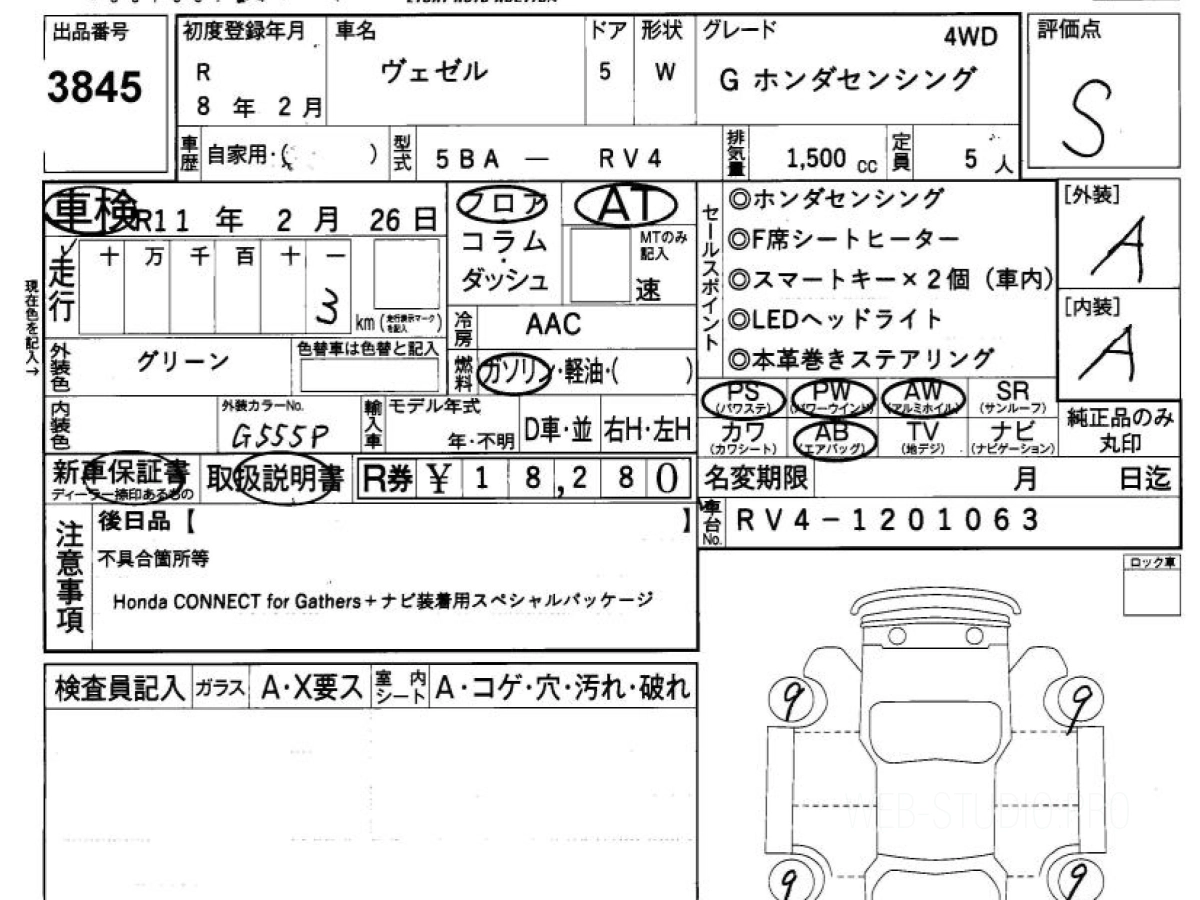 出品番号 初度登録年月 車名 ドア 形状 グレード 4WD 評価点
3845 R 8 年 2 月 ヴェゼル 5 W G ホンダセンシング S
車歴 自家用・( ) 型式 5BA － RV4 排気量 1,500 cc 定員 5 人
車検 R11 年 2 月 26 日
フロア AT
コラム・ダッシュ MTのみ記入 速
セールスポイント
◎ホンダセンシング
◎F席シートヒーター
◎スマートキー×2個（車内）
◎LEDヘッドライト
◎本革巻きステアリング
[外装] A
[内装] A
現在色を記入→
走行 十 万 千 百 十 一
3 km (走行表示マークを記入)
冷房 AAC
外装色 グリーン 色替車は色替と記入
燃料 ガソリン・軽油・( )
内装色 外装カラーNo. G555P
輸入車 モデル年式 年・不明 D車・並 右H・左H
PS (パワステ) PW (パワーウインド) AW (アルミホイル) SR (サンルーフ)
カワ (カワシート) AB (エアバッグ) TV (地デジ) ナビ (ナビゲーション)
純正品のみ丸印
新車保証書 ディーラー捺印あるもの 取扱説明書 R券 ¥ 18,280
名変期限 月 日迄
車台No. RV4-1201063
注意事項 後日品【 】
不具合箇所等
Honda CONNECT for Gathers＋ナビ装着用スペシャルパッケージ
ロック車
検査員記入 ガラス A・X要ス 室内シート A・コゲ・穴・汚れ・破れ
9 9
WEB-STUDIO.PRO
9 9